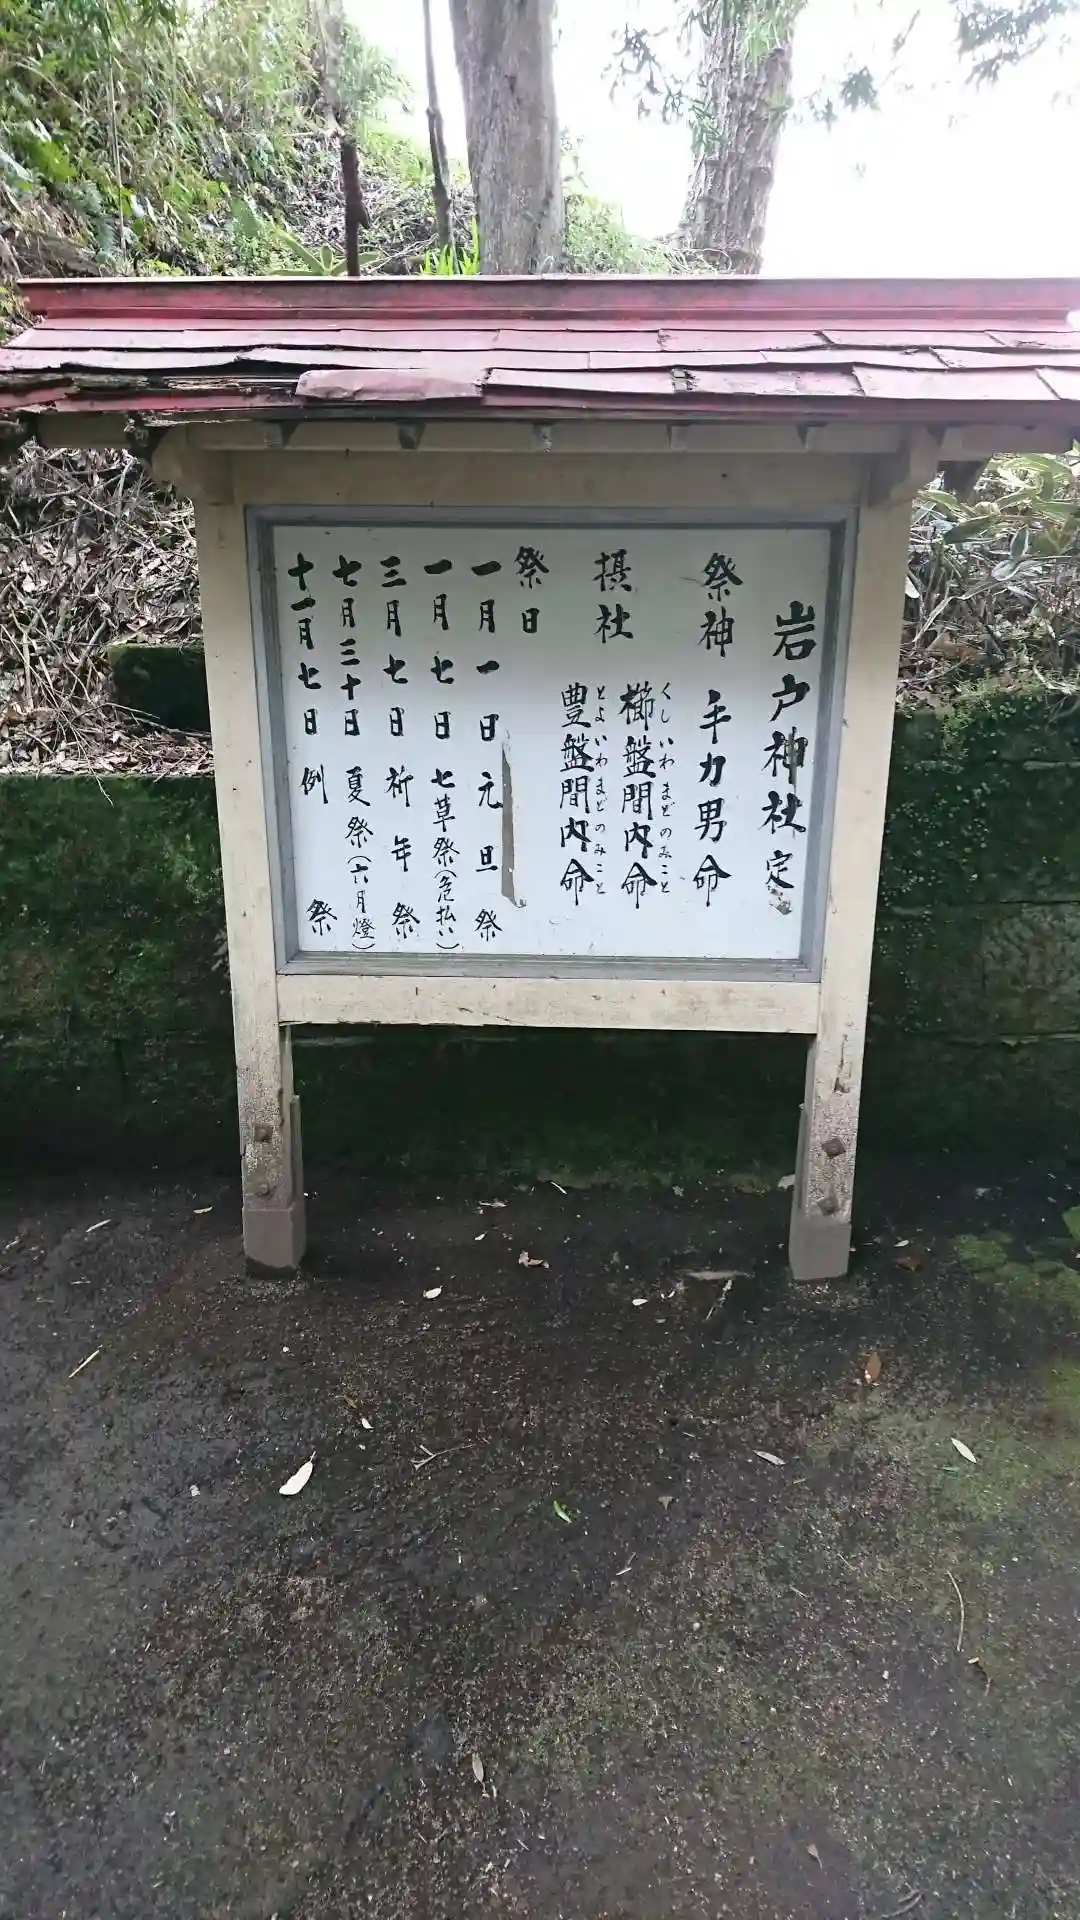 岩戸神社定
祭神 手力男命
摂社 櫛盤間内命
くしいわまどのみこと
豊盤間内命
とよいわまどのみこと
祭日
一月一日 元旦祭
一月七日 七草祭(危払い)
三月七日 祈年祭
七月三十日 夏祭(六月燈)
十一月七日 例祭